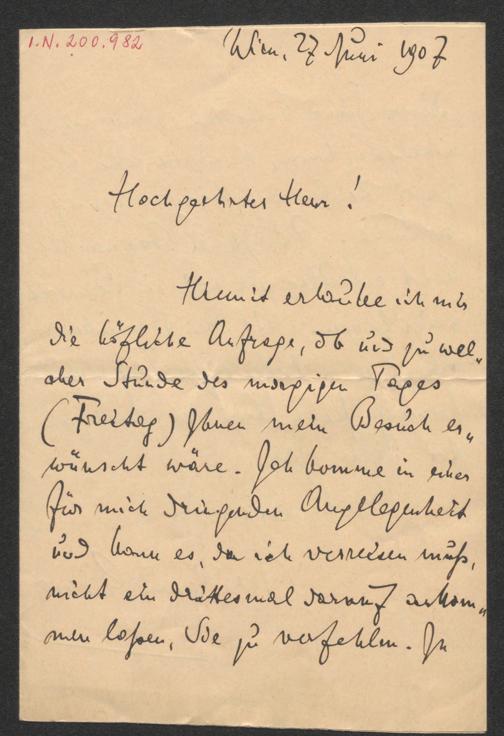 I.N. 200.982
Wien, 27 Juni 1907
Hochgeehrter Herr!
Hiemit erlaube ich mir
die höfliche Anfrage, ob und zu wel„
cher Stunde des morgigen Tages
(Freitag) Ihnen mein Besuch er„
wünscht wäre. Ich komme in einer
für mich dringenden Angelegenheit
und kann es, da ich verreisen muß,
nicht ein drittesmal darauf ankom„
men laßen, Sie zu verfehlen. In